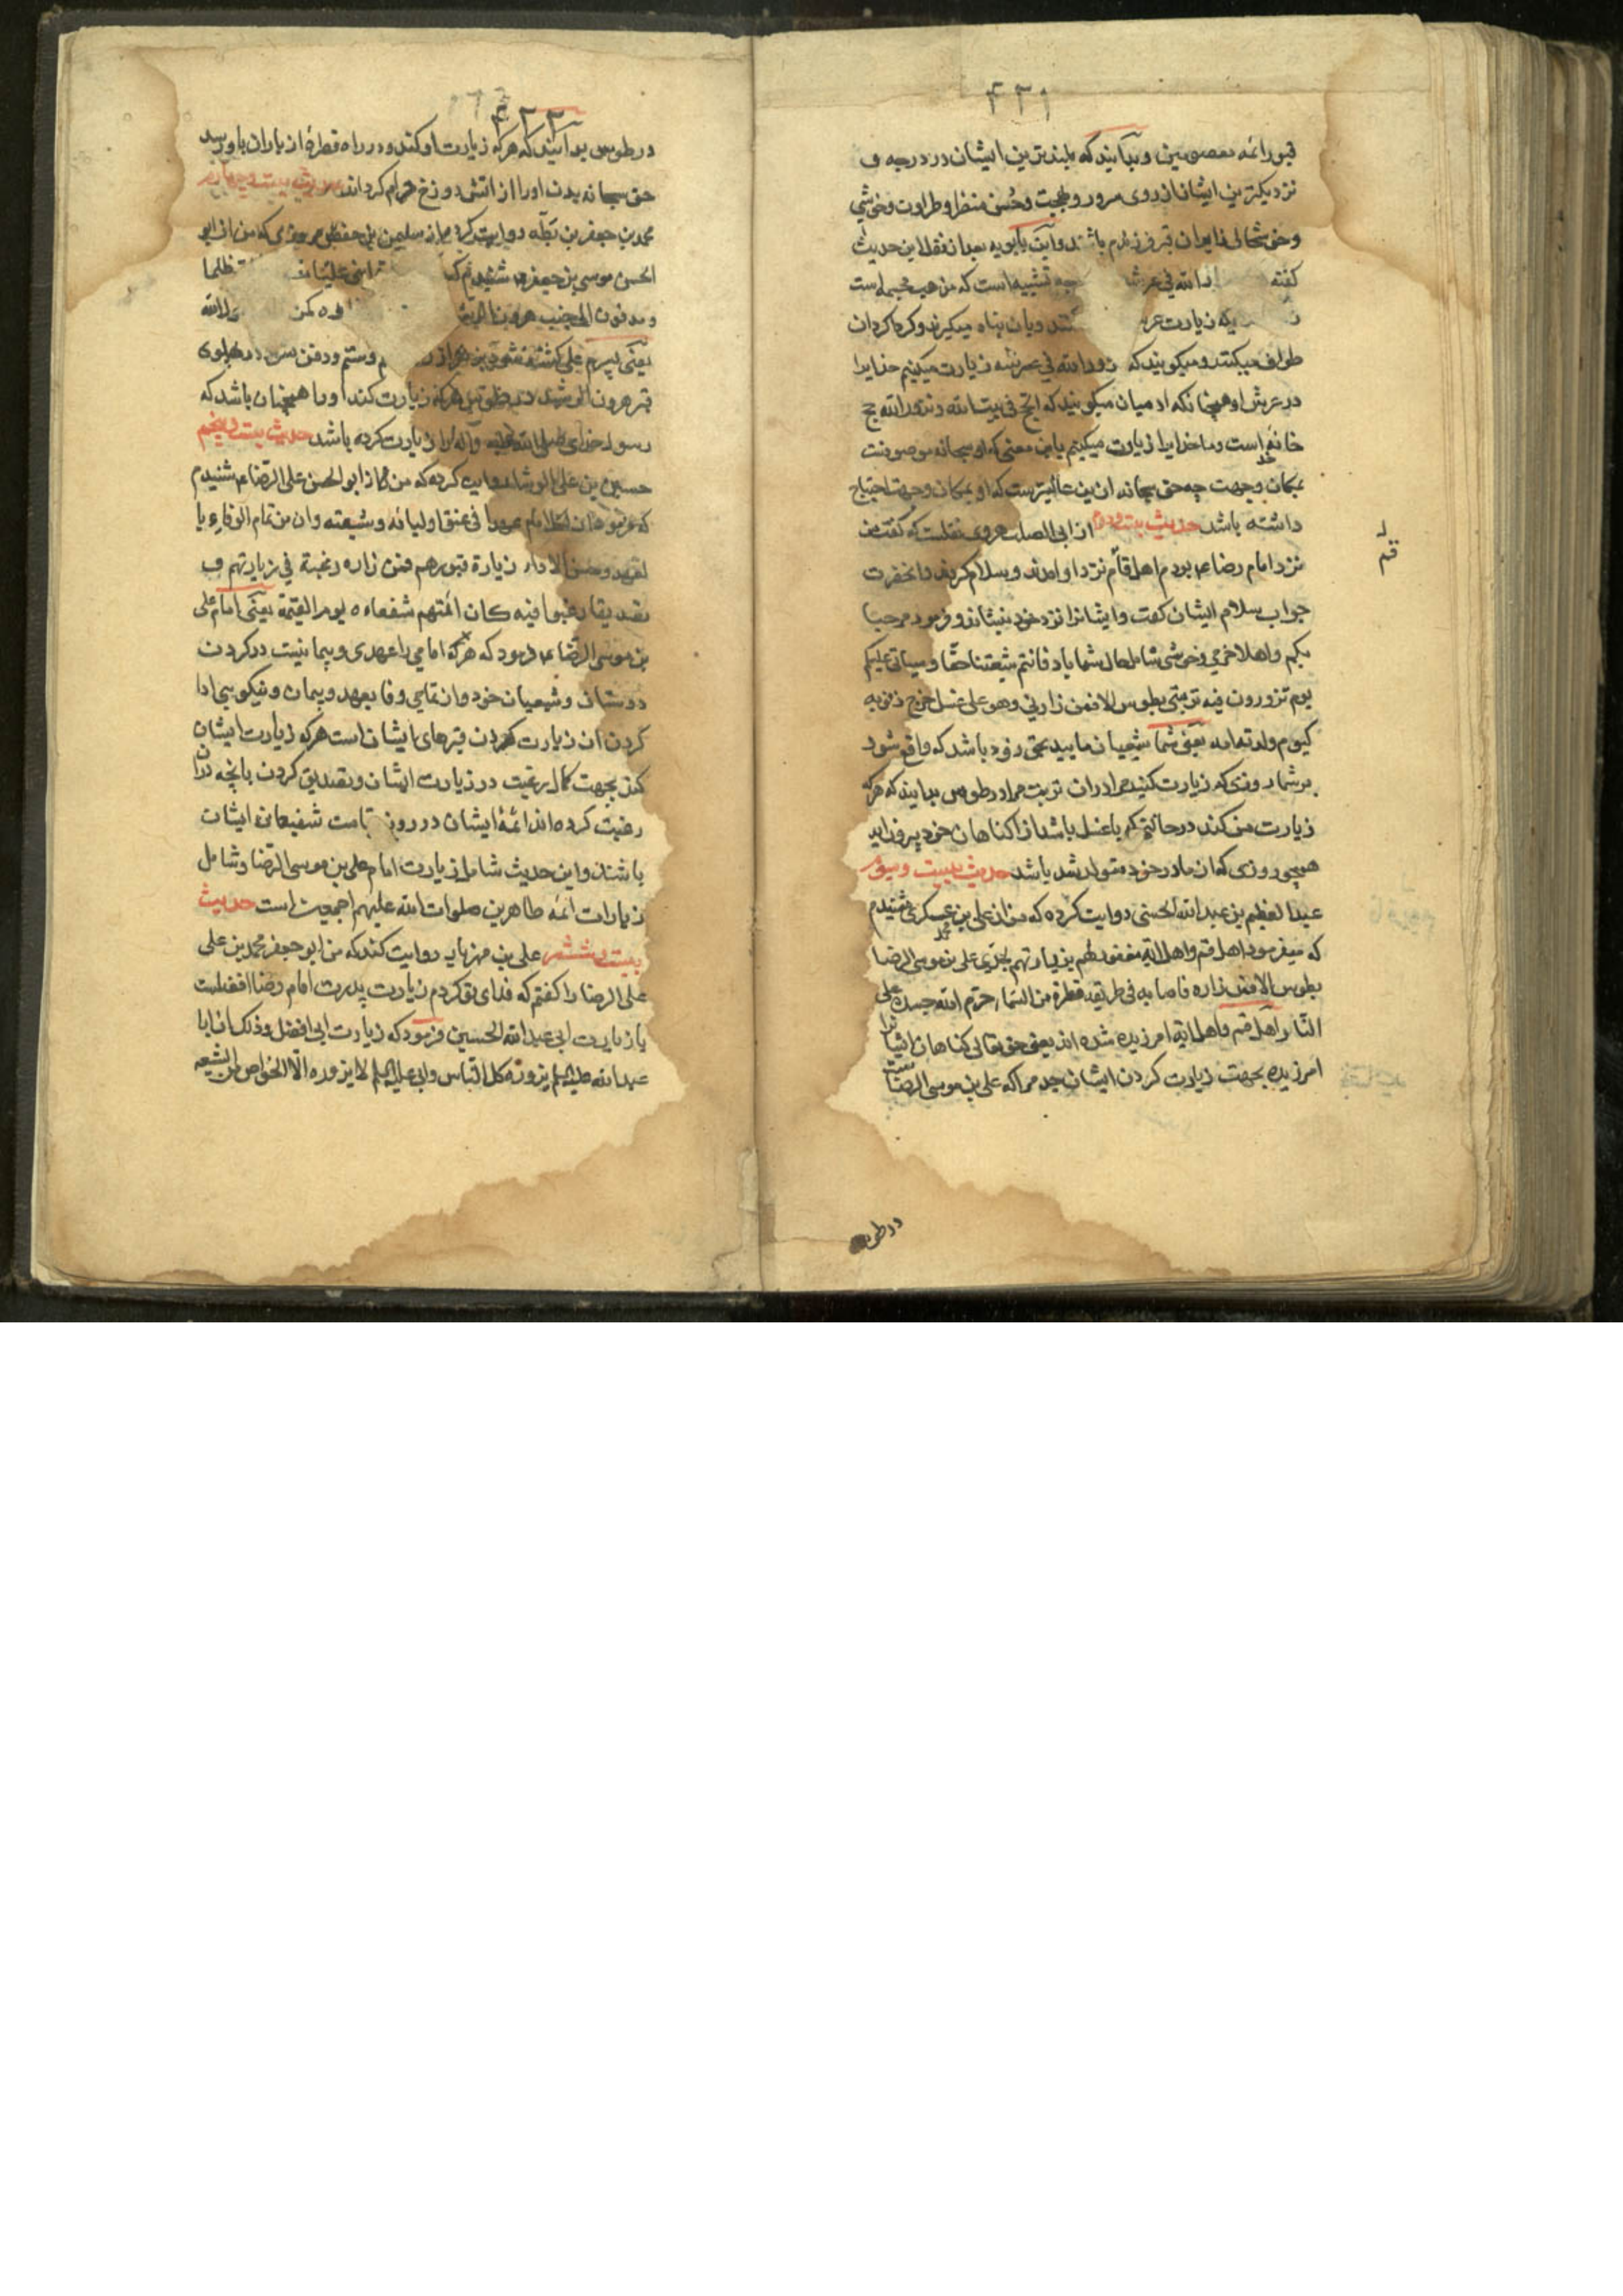 ۴۲۱
قبور ائمه معصومین و بدانید که بلندترین ایشان در درجه و
نزدیکترین ایشانان از روی مرور و بهجت و حسن منظر و طراوت و خوشی
و خوشحالی زایران قبر فرزندم باشند و ابن بابویه بعد از نقل این حدیث
گفته الله فی عرشه تشبیه است که مذهب مجسمه است
که زیارت عرش کنند و بان پناه میگیرند و کرداکردان
طواف میکنند و میگویند که نزور الله فی عرشه زیارت میکنیم خدایرا
در عرش او همچنانکه ادمیان میگویند که الحج فی بیت الله و نزور الله حج
خانه خداست و ما خدایرا زیارت میکنیم باین معنی که او سبحانه موصوفست
بمکان و جهت چه حق سبحانه از این عالیترست که او بمکان و جهت احتیاج
داشته باشد حدیث بیست و دوم از ابی الصلت هروی نقلست که گفت من
نزد امام رضا ع بودم اهل قم نزد او امدند و سلام کردند و انحضرت
جواب سلام ایشان گفت و ایشانرا نزد خود بنشاند و فرمود مرحبا
بکم و اهلا خرمی و خوشی شامل حال شما باد فانتم شیعتنا حقا و سیاتی علیکم
یوم تزورون فیه تربتی بطوس الا فمن زارنی و هو علی غسل خرج من ذنوبه
کیوم ولدته امه یعنی شما شیعیان مایید بحق زود باشد که واقع شود
بر شما روزی که زیارت کنید مرا دران تربت مرا در طوس بدانید که هر که
زیارت من کند در حالتی که با غسل باشد از گناهان خود بیرون اید
همچو روزی که از مادر خود متولد شد باشد حدیث بیست و سوم
عبدالعظیم بن عبدالله الحسنی روایت کرده که من از علی بن محمد عسکری شنیدم
که میفرمود اهل قم و اهل ابه مغفور لهم بزیارتهم لجدی علی بن موسی الرضا
بطوس الا فمن زاره فاصابه فی طریقه قطرة من السماء حرم الله جسده علی
النار اهل قم و اهل ابه امرزیده شده اند یعنی حق تعالی گناهان ایشانرا
امرزیده بجهت زیارت کردن ایشان جد مرا که علی بن موسی الرضاست
قم
در طوس
۴۲۲
در طوس بدانید که هر که زیارت او کند و در راه قطرهٔ از باران باو رسد
حق سبحانه بدن او را از اتش دوزخ حرام گرداند حدیث بیست و چهارم
محمد بن جعفر بن بطه روایت کرد از سلیمن بن حفص مروزی که من از ابو
الحسن موسی بن جعفر ع شنیدم که ابنی علیا ظلما
و مدفون الی جنب هرون الرشید
یعنی پسرم علی کشته شود بزهر از روی ستم و دفن سود در پهلوی
قبر هرون الرشید در طوس هر که زیارت کند او را همچنان باشد که
رسول خدای صلی الله علیه و آله را زیارت کرده باشد حدیث بیست و پنجم
حسین بن علی الوشا روایت کرده که من از ابو الحسن علی الرضا ع شنیدم
که فرمود ان لکل امام عهدا فی عنق اولیائه و شیعته و ان من تمام الوفاء با
لعهد و حسن الاداء زیارة قبورهم فمن زاره رغبة فی زیارتهم و
تصدیقا رغبوا فیه کان ائمتهم شفعاءه یوم القیمة یعنی امام علی
بن موسی الرضا ع فرمود که هر که امامی را عهدی و پیمانیست در گردن
دوستان و شیعیان خود و از تمامی وفا بعهد و پیمان و نیکویی ادا
کردن ان زیارت کردن قبرهای ایشان است هر که زیارت ایشان
کند بجهت کمال رغبت در زیارت ایشان و تصدیق کردن بانچه دران
رغبت کرده اند ائمهٔ ایشان در روز قیامت شفیعان ایشان
باشند و این حدیث شامل زیارت امام علی بن موسی الرضا و شامل
زیارات ائمه طاهرین صلوات الله علیهم اجمعین است حدیث
بیست و ششم علی بن مهزیار روایت کند که من ابو جعفر محمد بن علی
علی الرضا را گفتم که فدای تو گردم زیارت پدرت امام رضا افضلست
یا زیارت ابی عبدالله الحسین فرمود که زیارت ابی افضل و ذلک ان ابا
عبدالله علیه السلم یزوره کل الناس و ابی علیه السلم لا یزوره الا الخواص من الشیعه